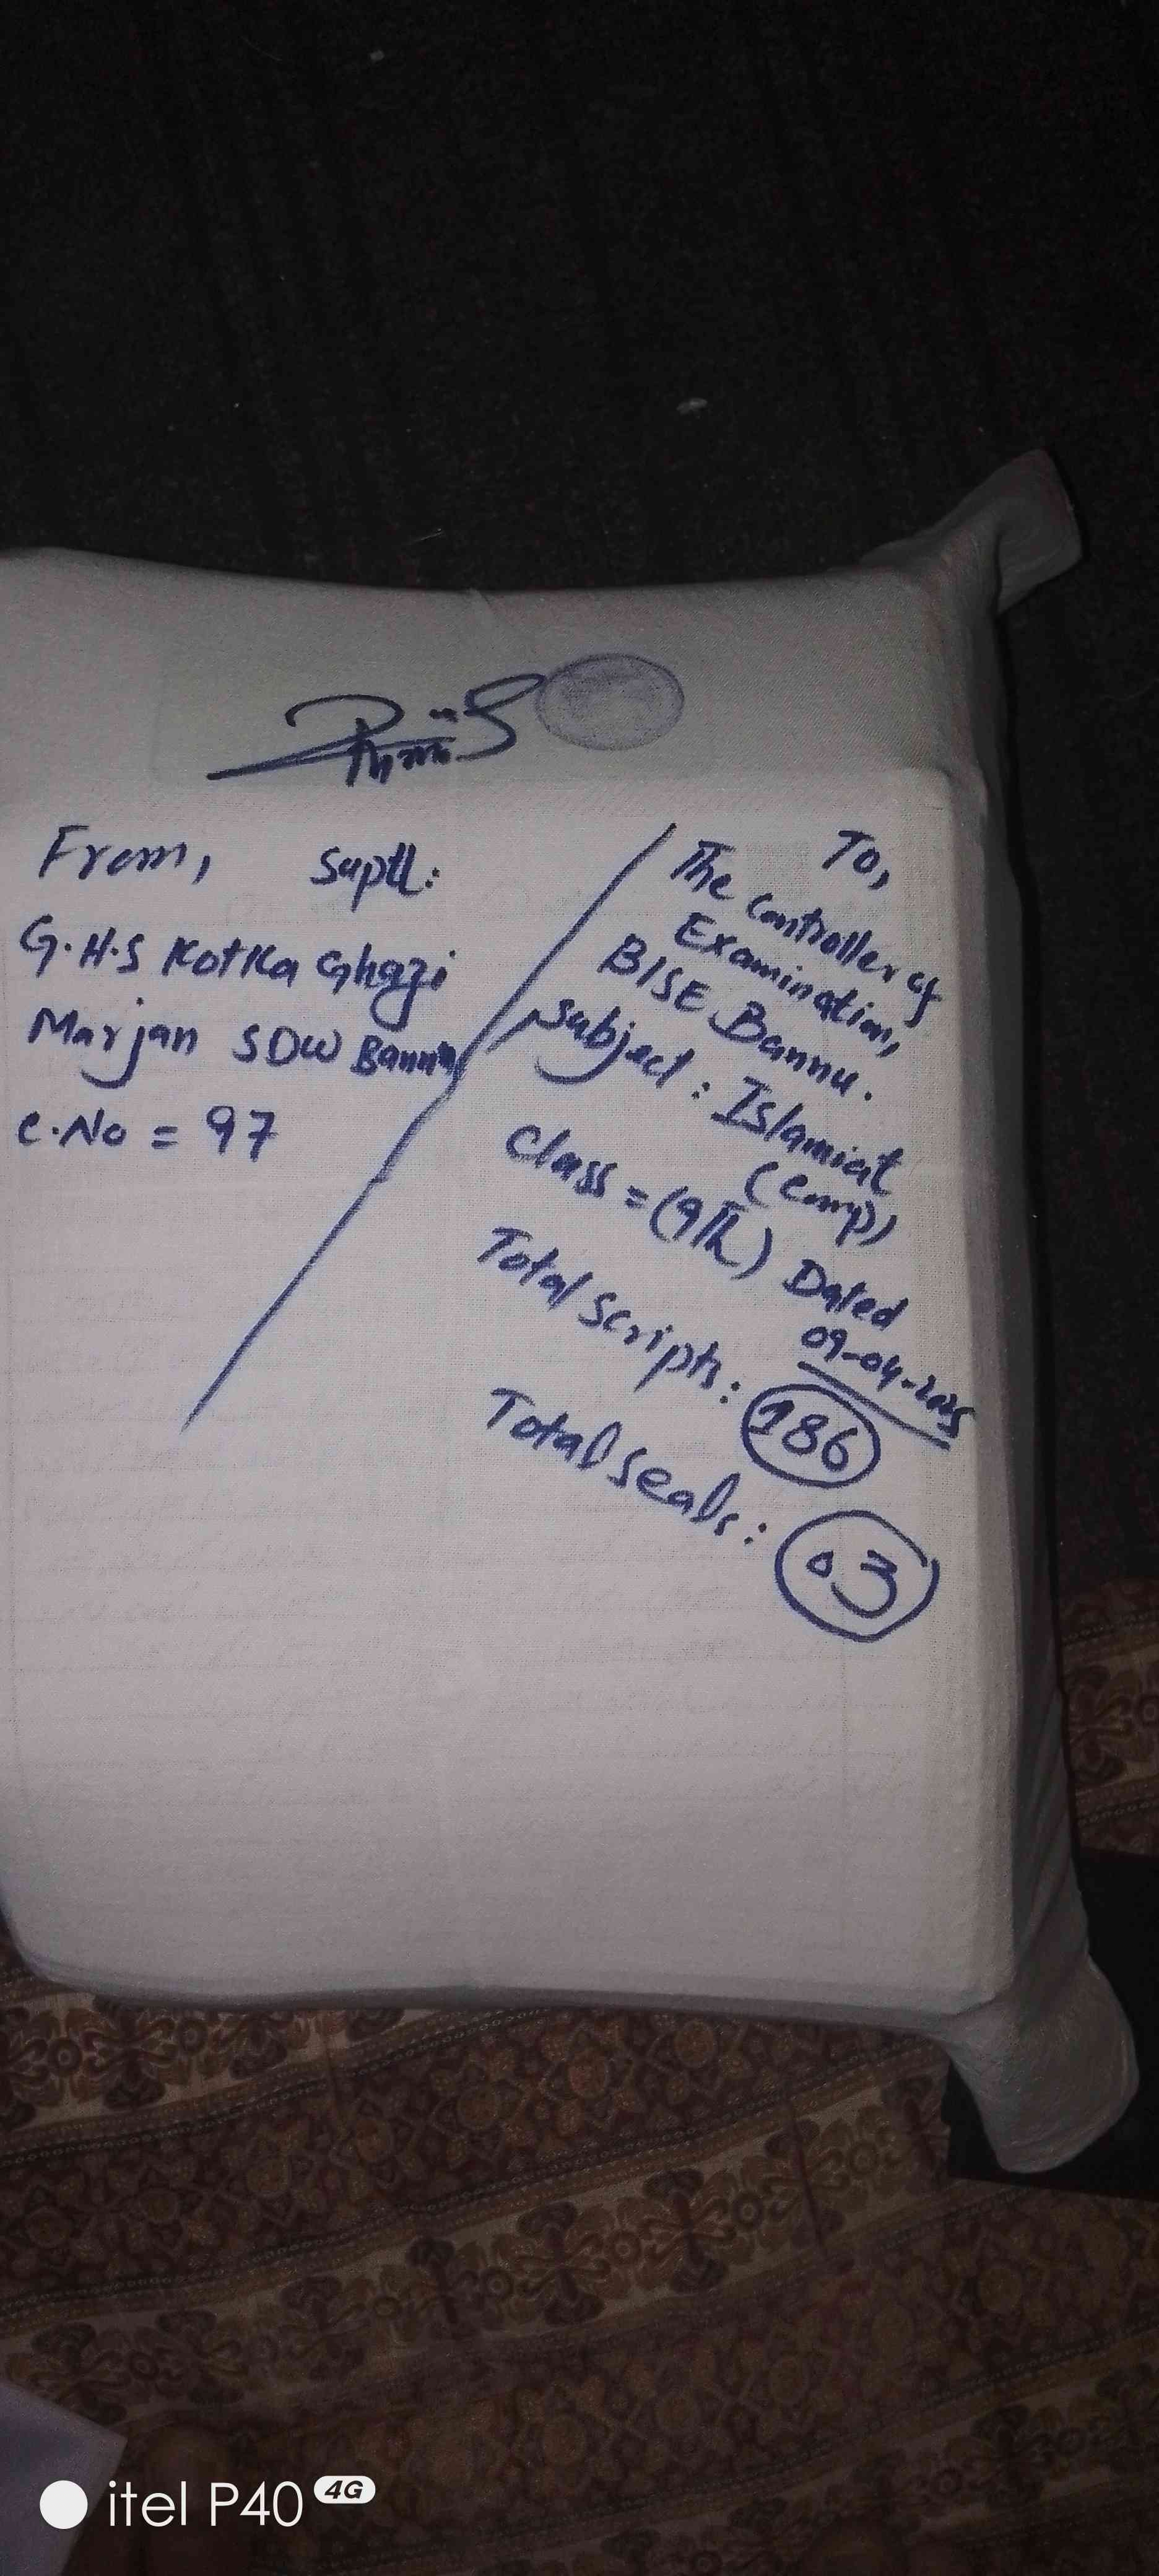 From, Suptt:
G.H.S Kotka Ghazi
Marjan SDW Bannu
C.No = 97
To,
The Controller of
Examination,
BISE Bannu.
Subject: Islamiat
(Comp)
Class = (9th) Dated
09-04-2025
Total scripts: 186
Total seals: 03
itel P40 4G